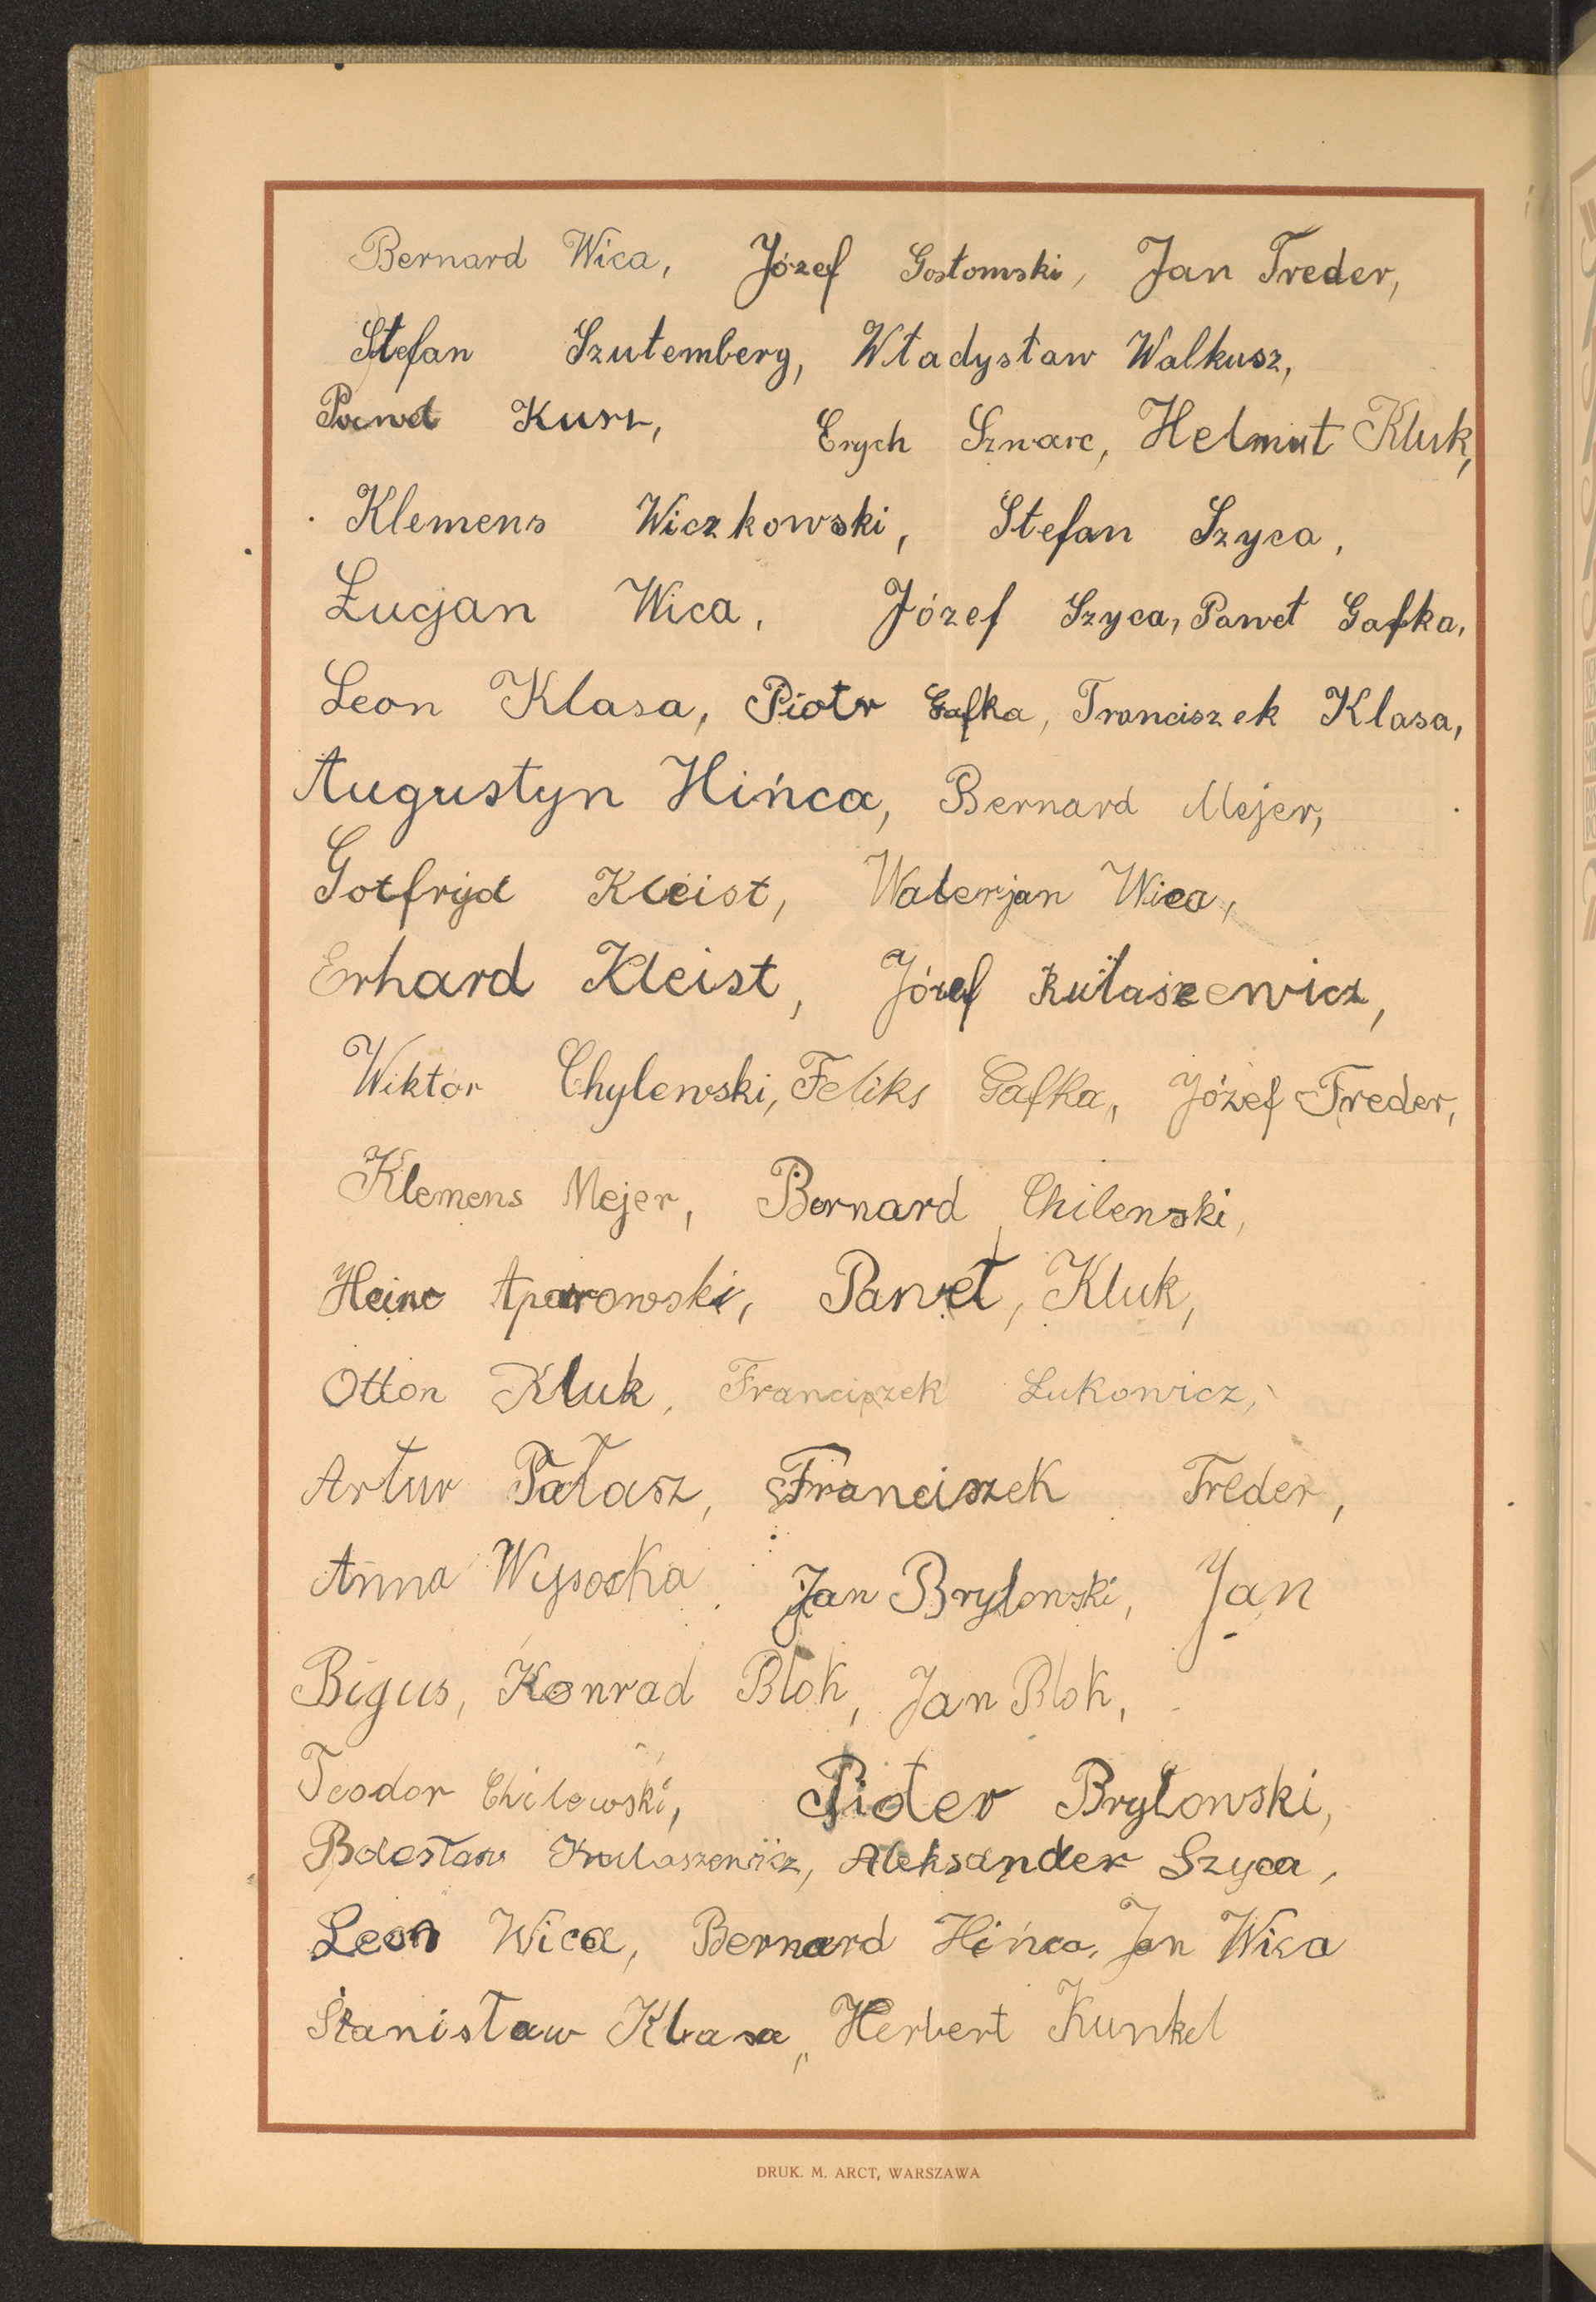 Bernard Wica, Józef Gostomski, Jan Treder,
Stefan Szutemberg, Władysław Walkusz,
Paweł Kurr, Erych Szwarc, Helmut Kluk,
Klemens Wiczkowski, Stefan Szyca,
Łucjan Wica, Józef Szyca, Paweł Gafka,
Leon Klasa, Piotr Gafka, Franciszek Klasa,
Augustyn Hińca, Bernard Mejer,
Gotfryd Kleist, Walerjan Wica,
Erhard Kleist, Józef Kułaszewicz,
Wiktor Chylewski, Feliks Gafka, Józef Treder,
Klemens Mejer, Bernard Chilewski,
Heinc Aparowski, Paweł, Kluk,
Otton Kluk, Franciszek Lukowicz,
Artur Pałasz, Franciszek Treder,
Anna Wysocka. Jan Brylowski, Jan
Bigus, Konrad Blok, Jan Blok,
Teodor Chilewski, Pioter Brylowski,
Bolesław Kułaszewicz, Aleksander Szyca,
Leon Wica, Bernard Hińca, Jan Wica
Stanisław Klasa, Herbert Kunkel
DRUK. M. ARCT, WARSZAWA